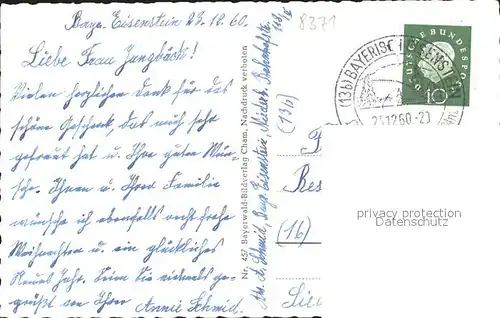 Bayr. Eisenstein 23.12.60.
8371
Liebe Frau Jungbäck!
Vielen herzlichen Dank für das
schöne Geschenk, das mich sehr
gefreut hat u. Ihre guten Wün-
sche. Ihnen u. Ihrer Familie
wünsche ich ebenfalls recht frohe
Weihnachten u. ein glückliches
Neues Jahr. Seien Sie vielmals ge-
grüßt von Ihrer
Annie Schmid.
Nr. 457 Bayerwald-Bildverlag Cham, Nachdruck verboten
Abs. A. Schmid, Bayr. Eisenstein, Bahnhofstr.
(13b)
(13b) BAYERISCH EISENSTEIN
23.12.60-20
DEUTSCHE BUNDESPOST
10
(16)
privacy protection
Datenschutz